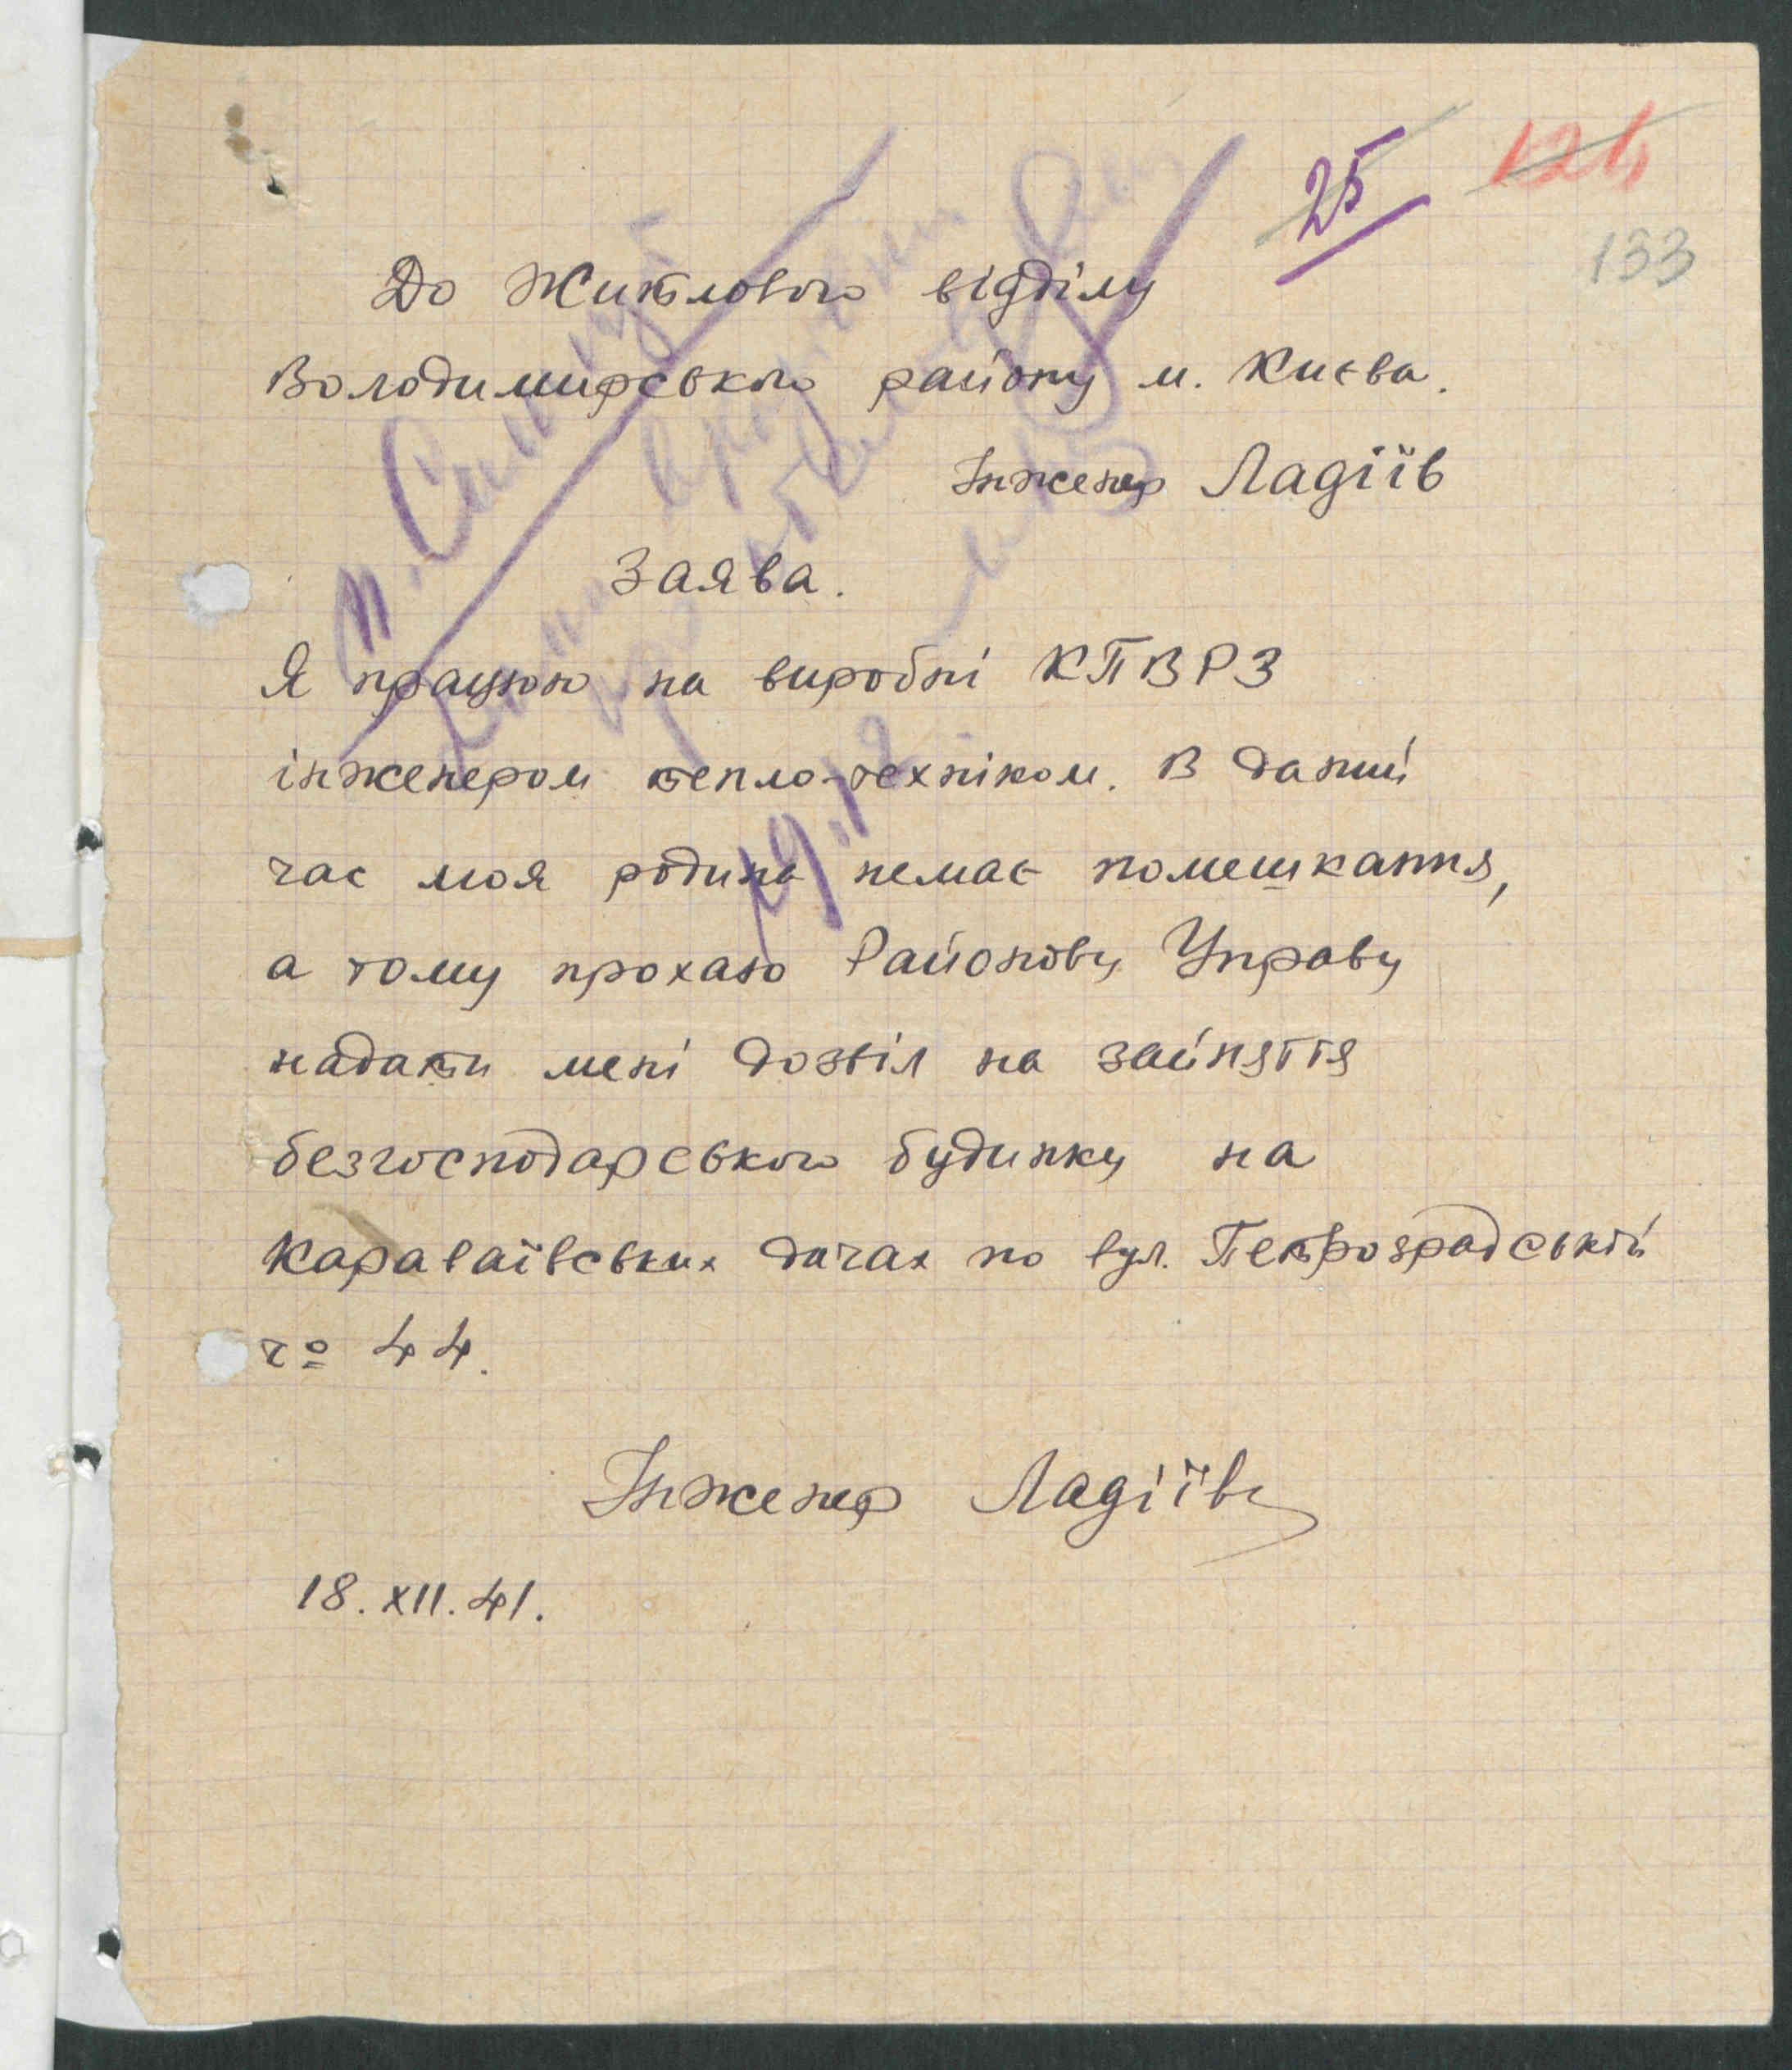 25
124
133
До Житлового відділу
Володимирського району м. Києва.
Інженер Ладіїв
Заява.
Я працюю на виробні КПВРЗ
інженером тепло-техніком. В даний
час моя родина немає помешкання,
а тому прохаю Районову Управу
надати мені дозвіл на зайняття
безгосподарського будинку на
Караваївських дачах по вул. Петроградській
чо 44.
Інженер Ладіїв
18.XII.41.
19.12